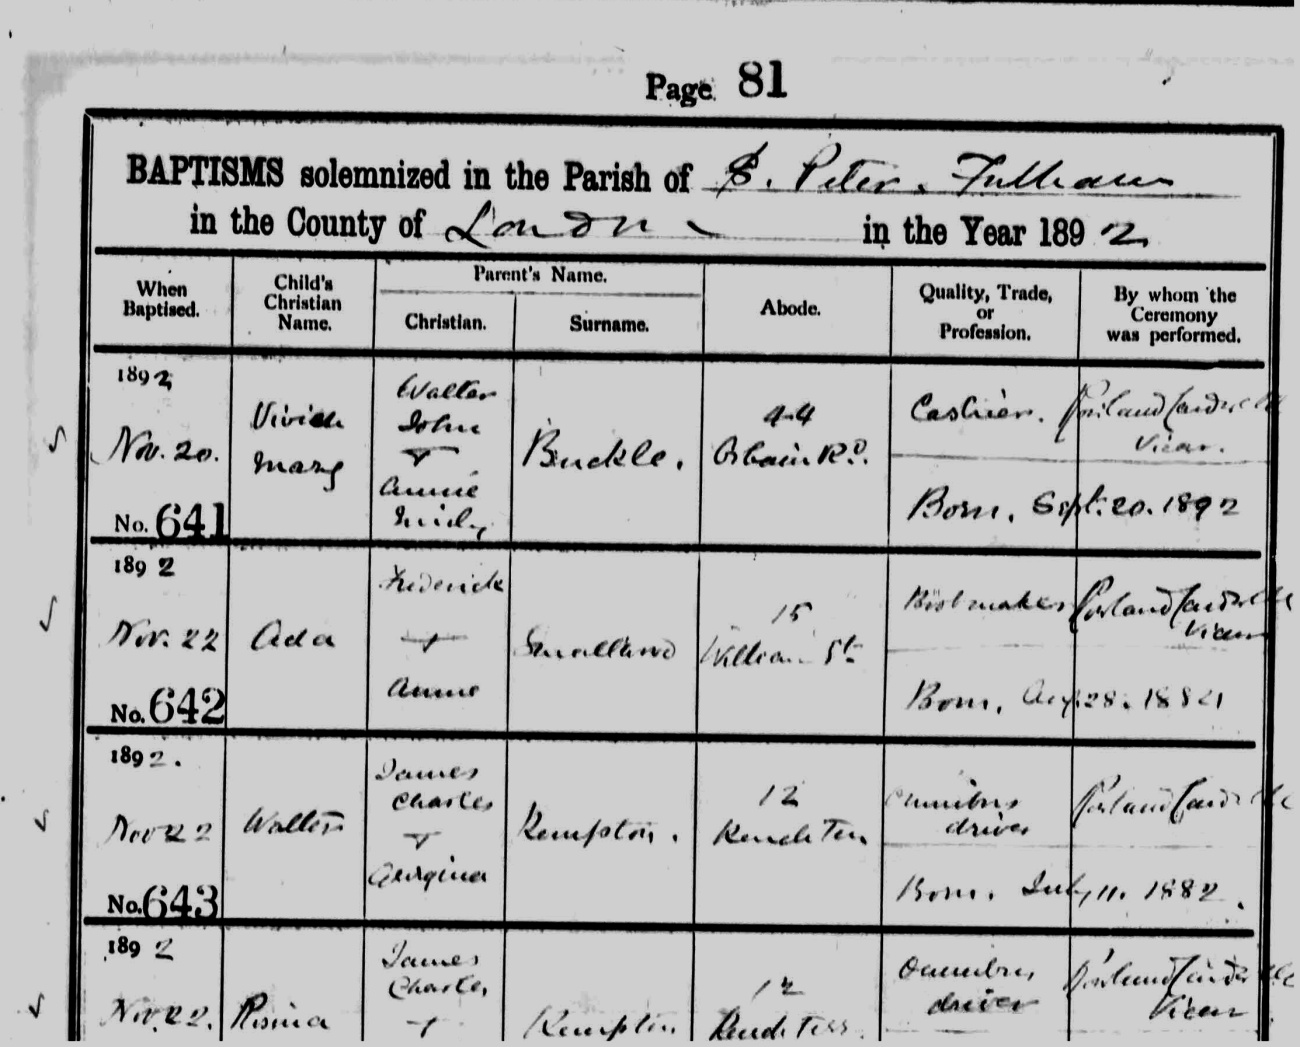 Page 81
BAPTISMS solemnized in the Parish of S. Peter. Fulham
in the County of London in the Year 1892
When Baptised.
Child's Christian Name.
Parent's Name.
Christian.
Surname.
Abode.
Quality, Trade, or Profession.
By whom the Ceremony was performed.
1892
Nov. 20.
No. 641
Vivian
Mary
Walter
John
+
Annie
Buckle.
44
Orbain Rd.
Cashier.
Vicar.
Born. Sept. 20. 1892
1892
Nov. 22
No. 642
Ada
Frederick
+
Annie
Smallwood
15
William St.
Bootmaker
Vicar
Born. Aug. 28.
1892.
Nov 22
No. 643
Walter
James
Charles
+
Georgina
Kempton.
12
Omnibus
driver
Born. July 11. 1882.
1892
Nov. 22.
Rosina
James
Charles
+
Kempton
12
Omnibus
driver
Vicar